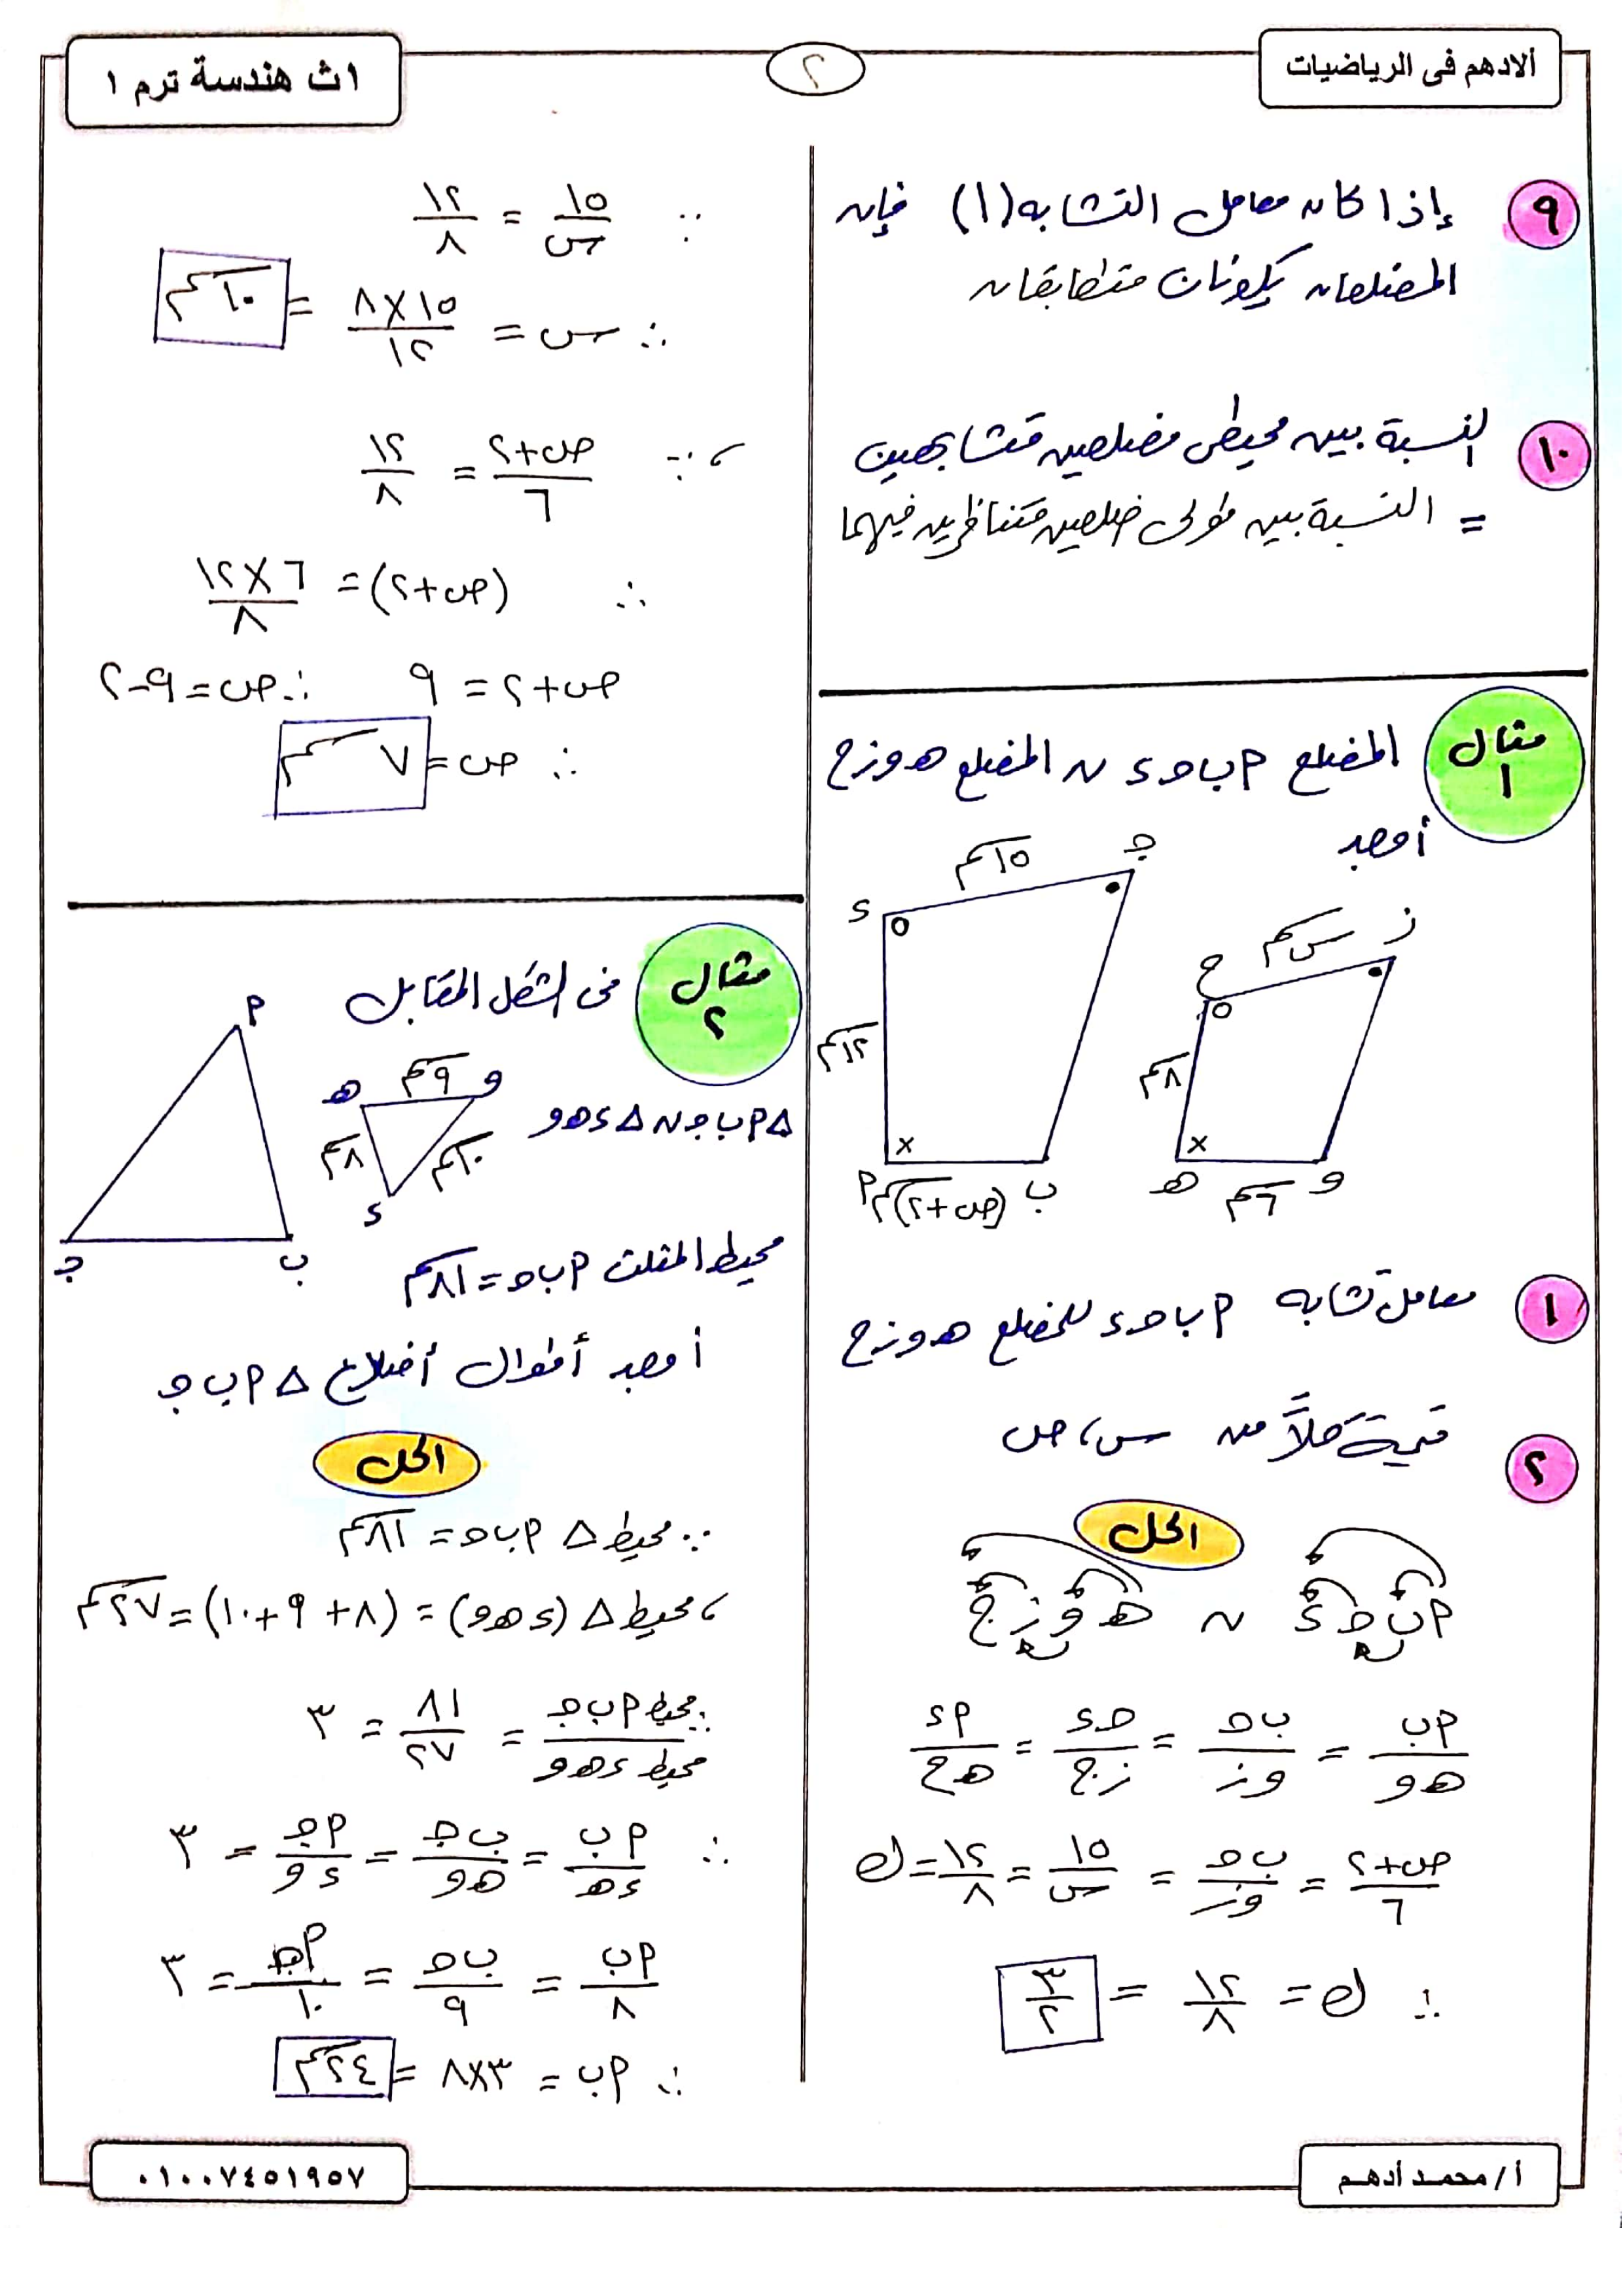 الادهم فى الرياضيات
٢
١ث هندسة ترم ١
٩ إذا كان معامل التشابه (١) فإن
المضلعان يكونان متطابقان
١٠ النسبة بين محيطى مضلعين متشابهين
= النسبة بين طولى ضلعين متناظرين فيهما
مثال ١ المضلع ٢ب حـ ء ~ المضلع هـ و ز ح
أوجد
جـ ١٥سم ء
ز س سم ح
١٢سم
٨سم
٢ (ص+٢)سم ب
هـ ٦سم و
١ معامل تشابه ٢ب حـ ء للمضلع هـ و ز ح
٢ قيمة كلاً من س، ص
الحل
٢ب حـ ء ~ هـ و ز ح
٢ب/هـ و = ب حـ/و ز = حـ ء/ز ح = ٢ء/هـ ح
ص+٢/٦ = ب حـ/و ز = ١٥/س = ١٢/٨ = ك
∴ ك = ١٢/٨ = ٣/٢
∵ ١٥/س = ١٢/٨
∴ س = ١٥×٨/١٢ = ١٠سم
، ∵ ص+٢/٦ = ١٢/٨
∴ (ص+٢) = ٦×١٢/٨
ص+٢ = ٩ ∴ ص = ٩-٢
∴ ص = ٧سم
مثال ٢ فى الشكل المقابل
∆ ٢ب جـ ~ ∆ ء هـ و
٢
و ٩سم هـ
١٠سم ٨سم
ء
ب جـ
محيط المثلث ٢ب حـ = ٨١سم
أوجد أطوال أضلاع ∆ ٢ب جـ
الحل
∵ محيط ∆ ٢ب حـ = ٨١سم
، محيط ∆ (ء هـ و) = (٨ + ٩ + ١٠) = ٢٧سم
∵ محيط ٢ب جـ/محيط ء هـ و = ٨١/٢٧ = ٣
∴ ٢ب/ء هـ = ب جـ/هـ و = ٢جـ/ء و = ٣
٢ب/٨ = ب حـ/٩ = ٢جـ/١٠ = ٣
∴ ٢ب = ٣×٨ = ٢٤سم
أ/ محمد أدهم
٠١٠٠٧٤٥١٩٥٧